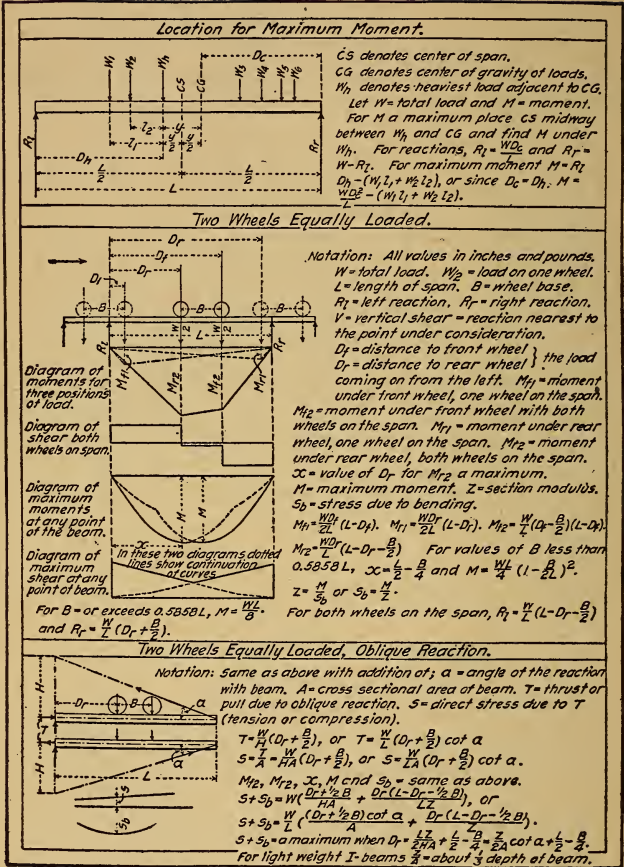 Location for Maximum Moment.
W₁ W₂ Wₕ CS CG Dc W₃ W₄ W₅ W₆
l₂ y
l₁ y/2 y/2
Rl Dₕ Rr
L/2 L/2
L
CS denotes center of span.
CG denotes center of gravity of loads.
Wₕ denotes heaviest load adjacent to CG.
Let W = total load and M = moment.
For M a maximum place CS midway
between Wₕ and CG and find M under
Wₕ. For reactions, Rl = WDc/L and Rr =
W-Rl. For maximum moment M = Rl
Dₕ - (W₁l₁ + W₂l₂), or since Dc = Dₕ, M =
WDc²/L - (W₁l₁ + W₂l₂).
Two Wheels Equally Loaded.
Dr
Df
Dr
Dl
B B B
W/2 W/2 L
Rl Rr
Mf1 Mr2 Mf2 Mr1
Diagram of
moments for
three positions
of load.
Diagram of
shear both
wheels on span.
Diagram of
maximum
moments
at any point
of the beam.
M M
x
Diagram of
maximum
shear at any
point of beam.
In these two diagrams dotted
lines show continuation
of curves
Notation: All values in inches and pounds.
W = total load. W₂ = load on one wheel.
L = length of span. B = wheel base.
Rl = left reaction. Rr = right reaction.
V = vertical shear = reaction nearest to
the point under consideration.
Df = distance to front wheel } the load
Dr = distance to rear wheel
coming on from the left. Mf1 = moment
under front wheel, one wheel on the span.
Mf2 = moment under front wheel with both
wheels on the span. Mr1 = moment under rear
wheel, one wheel on the span. Mr2 = moment
under rear wheel, both wheels on the span.
x = value of Dr for Mr2 a maximum.
M = maximum moment. Z = section modulus.
Sb = stress due to bending.
Mf1 = WDf/2L (L-Df). Mr1 = WDr/2L (L-Dr). Mf2 = W/L (Dr + B/2)(L-Df).
Mr2 = WDr/L (L-Dr-B/2) For values of B less than
0.5858L, x = L/2 - B/4 and M = WL/4 (1-B/2L)².
Z = M/Sb or Sb = M/Z.
For B = or exceeds 0.5858L, M = WL/8. For both wheels on the span, Rl = W/L (L-Dr-B/2)
and Rr = W/L (Dr + B/2).
Two Wheels Equally Loaded, Oblique Reaction.
H Dr B a
T
H L a
S
Sb
Notation: Same as above with addition of; a = angle of the reaction
with beam. A = cross sectional area of beam. T = thrust or
pull due to oblique reaction. S = direct stress due to T
(tension or compression).
T = W/H (Dr + B/2), or T = W/L (Dr + B/2) cot a
S = T/A = W/HA (Dr + B/2), or S = W/LA (Dr + B/2) cot a.
Mf2, Mr2, x, M and Sb = same as above.
S + Sb = W( Dr + 1/2 B/HA + Dr(L-Dr-1/2 B)/LZ ), or
S + Sb = W/L ( (Dr + 1/2 B) cot a/A + Dr(L-Dr-1/2 B)/Z ).
S + Sb = a maximum when Dr = LZ/2HA + L/2 - B/4 = Z/2A cot a + L/2 - B/4.
For light weight I-beams Z/A = about 1/3 depth of beam.